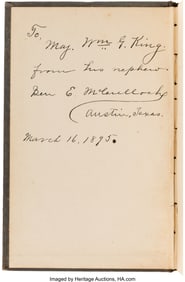 To,
Maj. Wm G. King.
from his nephew
Ben E. McCulloch
Austin, Texas.
March 16, 1895.
Imaged by Heritage Auctions, HA.com